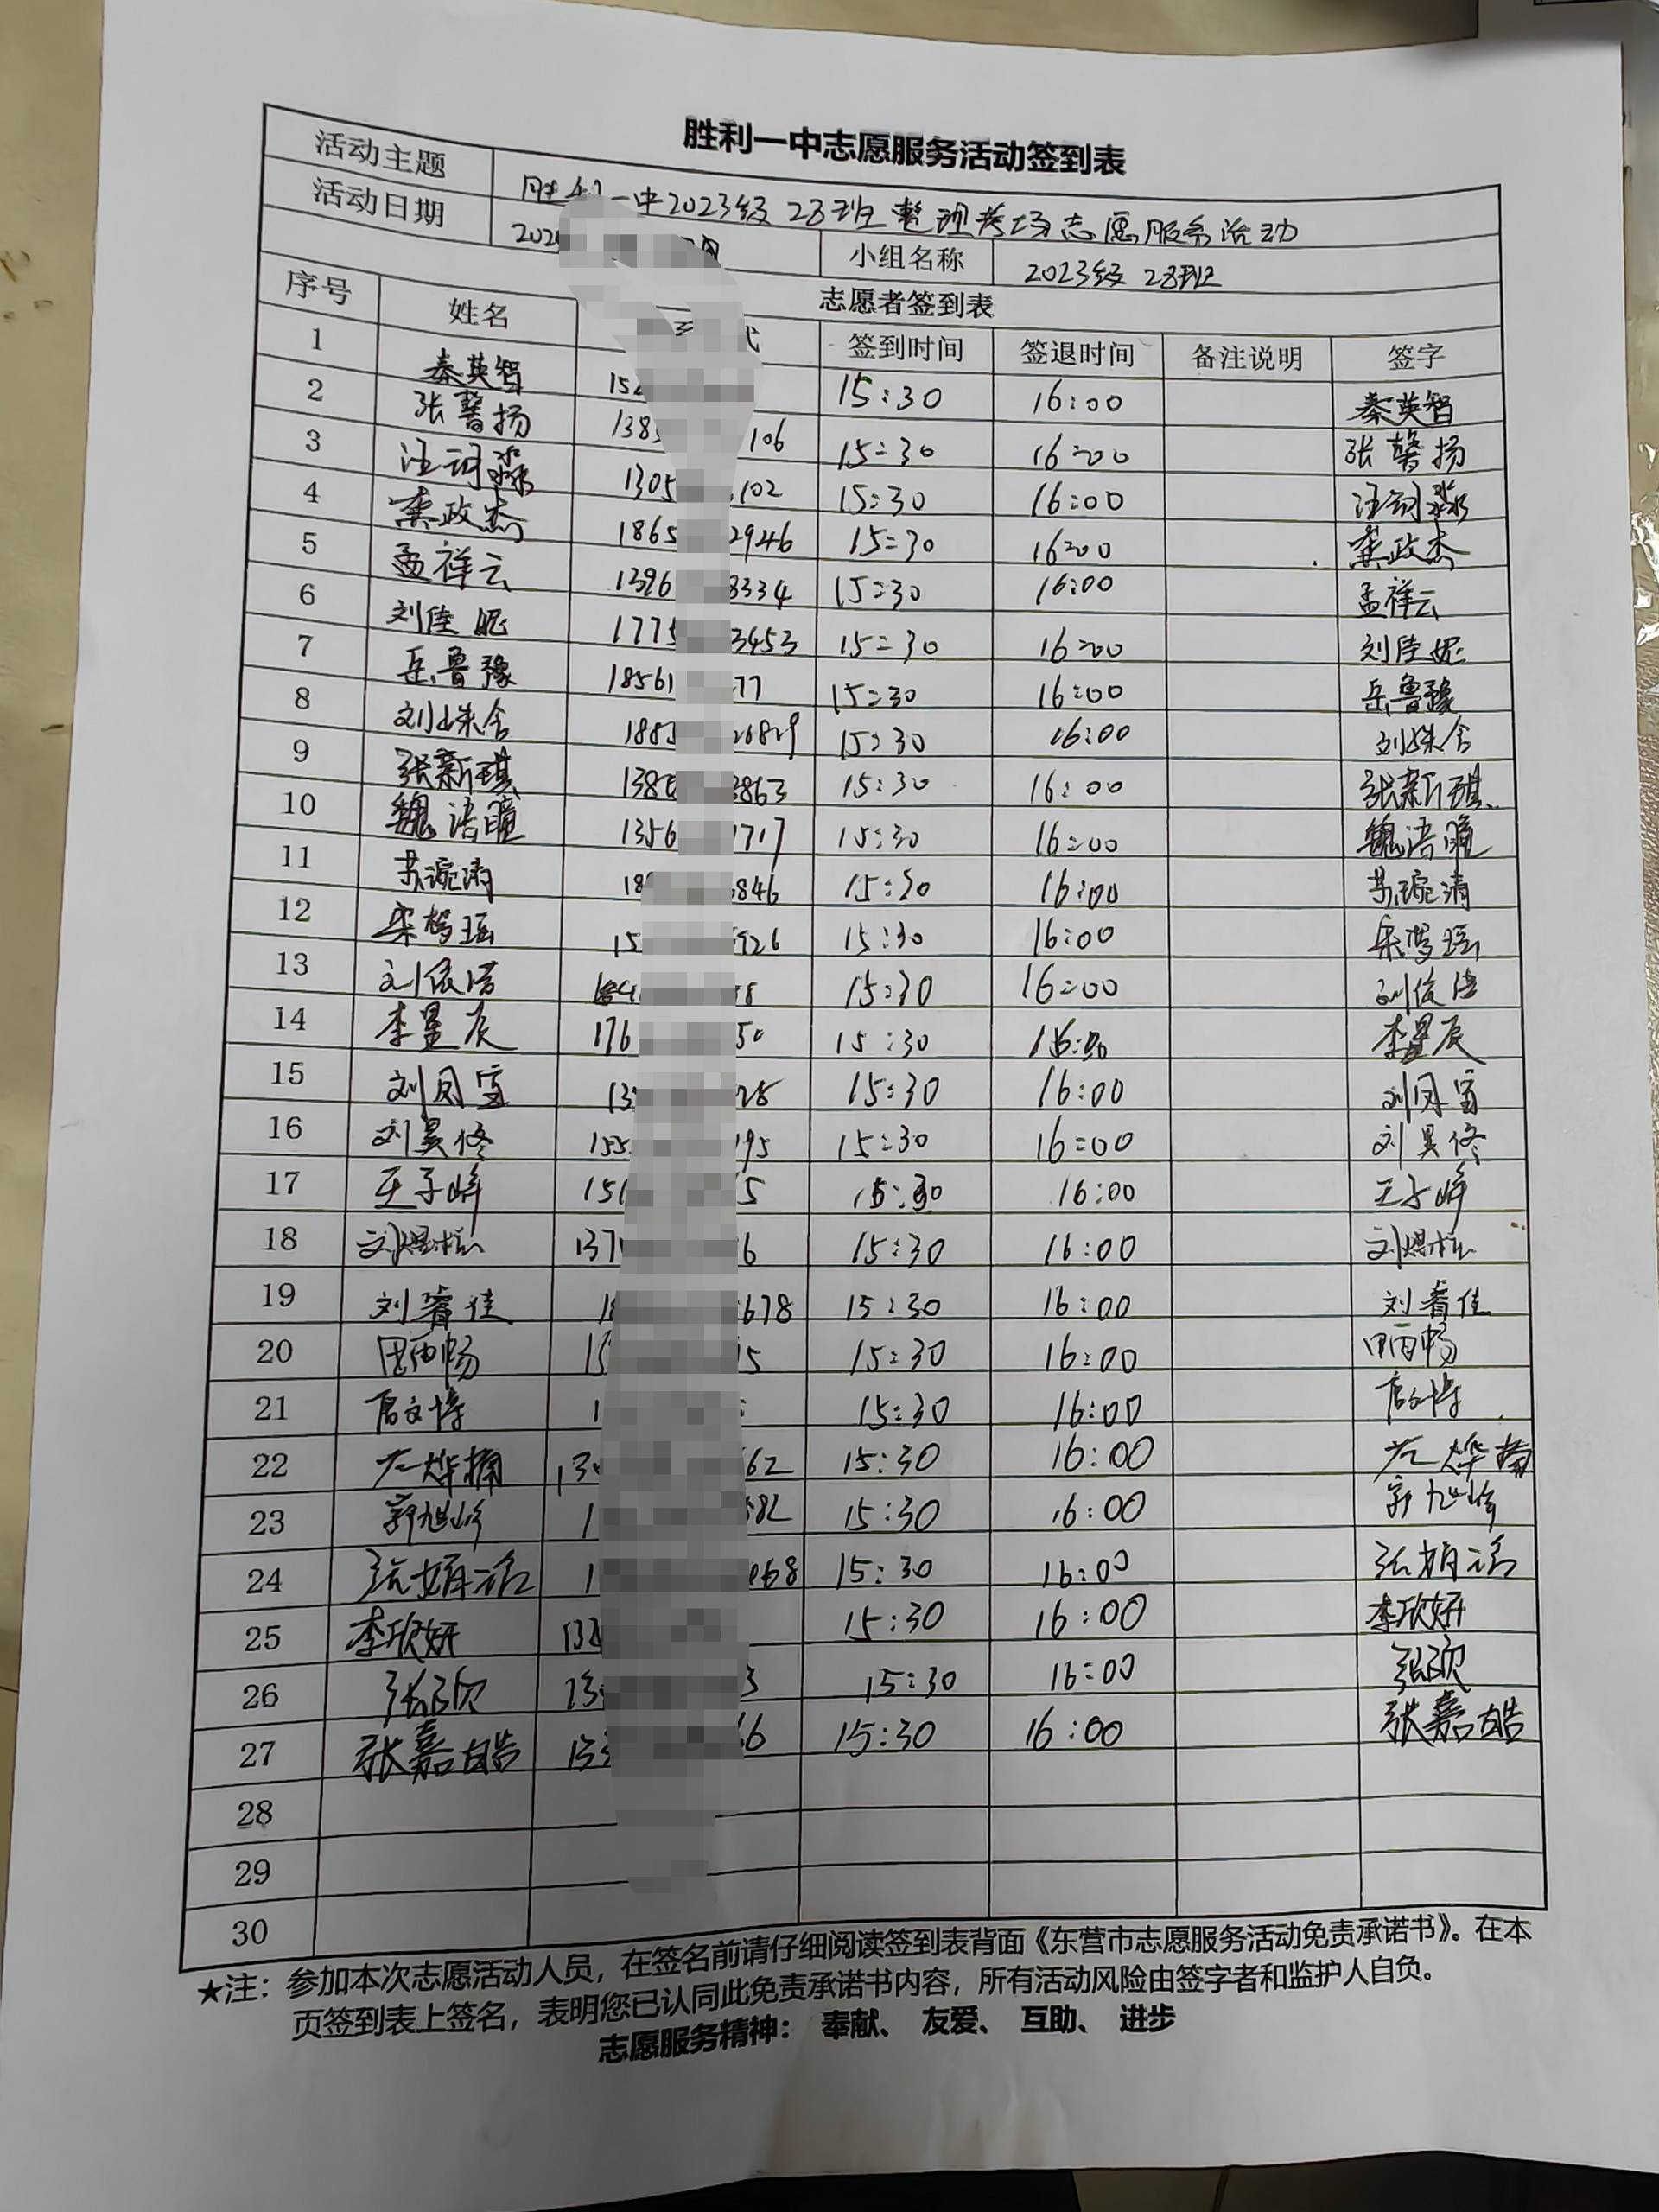 胜利一中志愿服务活动签到表
活动主题 胜利一中2023级28班整理考场志愿服务活动
活动日期 202 小组名称 2023级28班
志愿者签到表
序号 姓名 签到时间 签退时间 备注说明 签字
1 秦英智 152 15:30 16:00 秦英智
2 张馨扬 138 106 15:30 16:00 张馨扬
3 汪诃淼 1305 102 15:30 16:00 汪诃淼
4 龚政杰 1865 2946 15:30 16:00 龚政杰
5 孟祥云 1396 8334 15:30 16:00 孟祥云
6 刘佳妮 1775 3453 15:30 16:00 刘佳妮
7 岳鲁豫 18561 77 15:30 16:00 岳鲁豫
8 刘姝含 188 6829 15:30 16:00 刘姝含
9 张新琪 138 3863 15:30 16:00 张新琪
10 魏浩瞳 1356 1717 15:30 16:00 魏浩瞳
11 苏琬清 18 846 15:30 16:00 苏琬清
12 宋梦瑶 15 926 15:30 16:00 宋梦瑶
13 刘依浩 8 15:30 16:00 刘依浩
14 李星辰 176 50 15:30 16:00 李星辰
15 刘凤宜 13 28 15:30 16:00 刘凤宜
16 刘昊修 155 195 15:30 16:00 刘昊修
17 王子峰 151 5 15:30 16:00 王子峰
18 刘煜 137 6 15:30 16:00 刘煜
19 刘睿佳 678 15:30 16:00 刘睿佳
20 田雨畅 15 15:30 16:00 田雨畅
21 唐文博 1 15:30 16:00 唐文博
22 烨楠 13 62 15:30 16:00 烨楠
23 郭旭峰 1 82 15:30 16:00 郭旭峰
24 张婧涵 1 68 15:30 16:00 张婧涵
25 李欣妍 132 15:30 16:00 李欣妍
26 张 3 15:30 16:00 张
27 张嘉皓 66 15:30 16:00 张嘉皓
28
29
30
★注：参加本次志愿活动人员，在签名前请仔细阅读签到表背面《东营市志愿服务活动免责承诺书》。在本
页签到表上签名，表明您已认同此免责承诺书内容，所有活动风险由签字者和监护人自负。
志愿服务精神： 奉献、 友爱、 互助、 进步